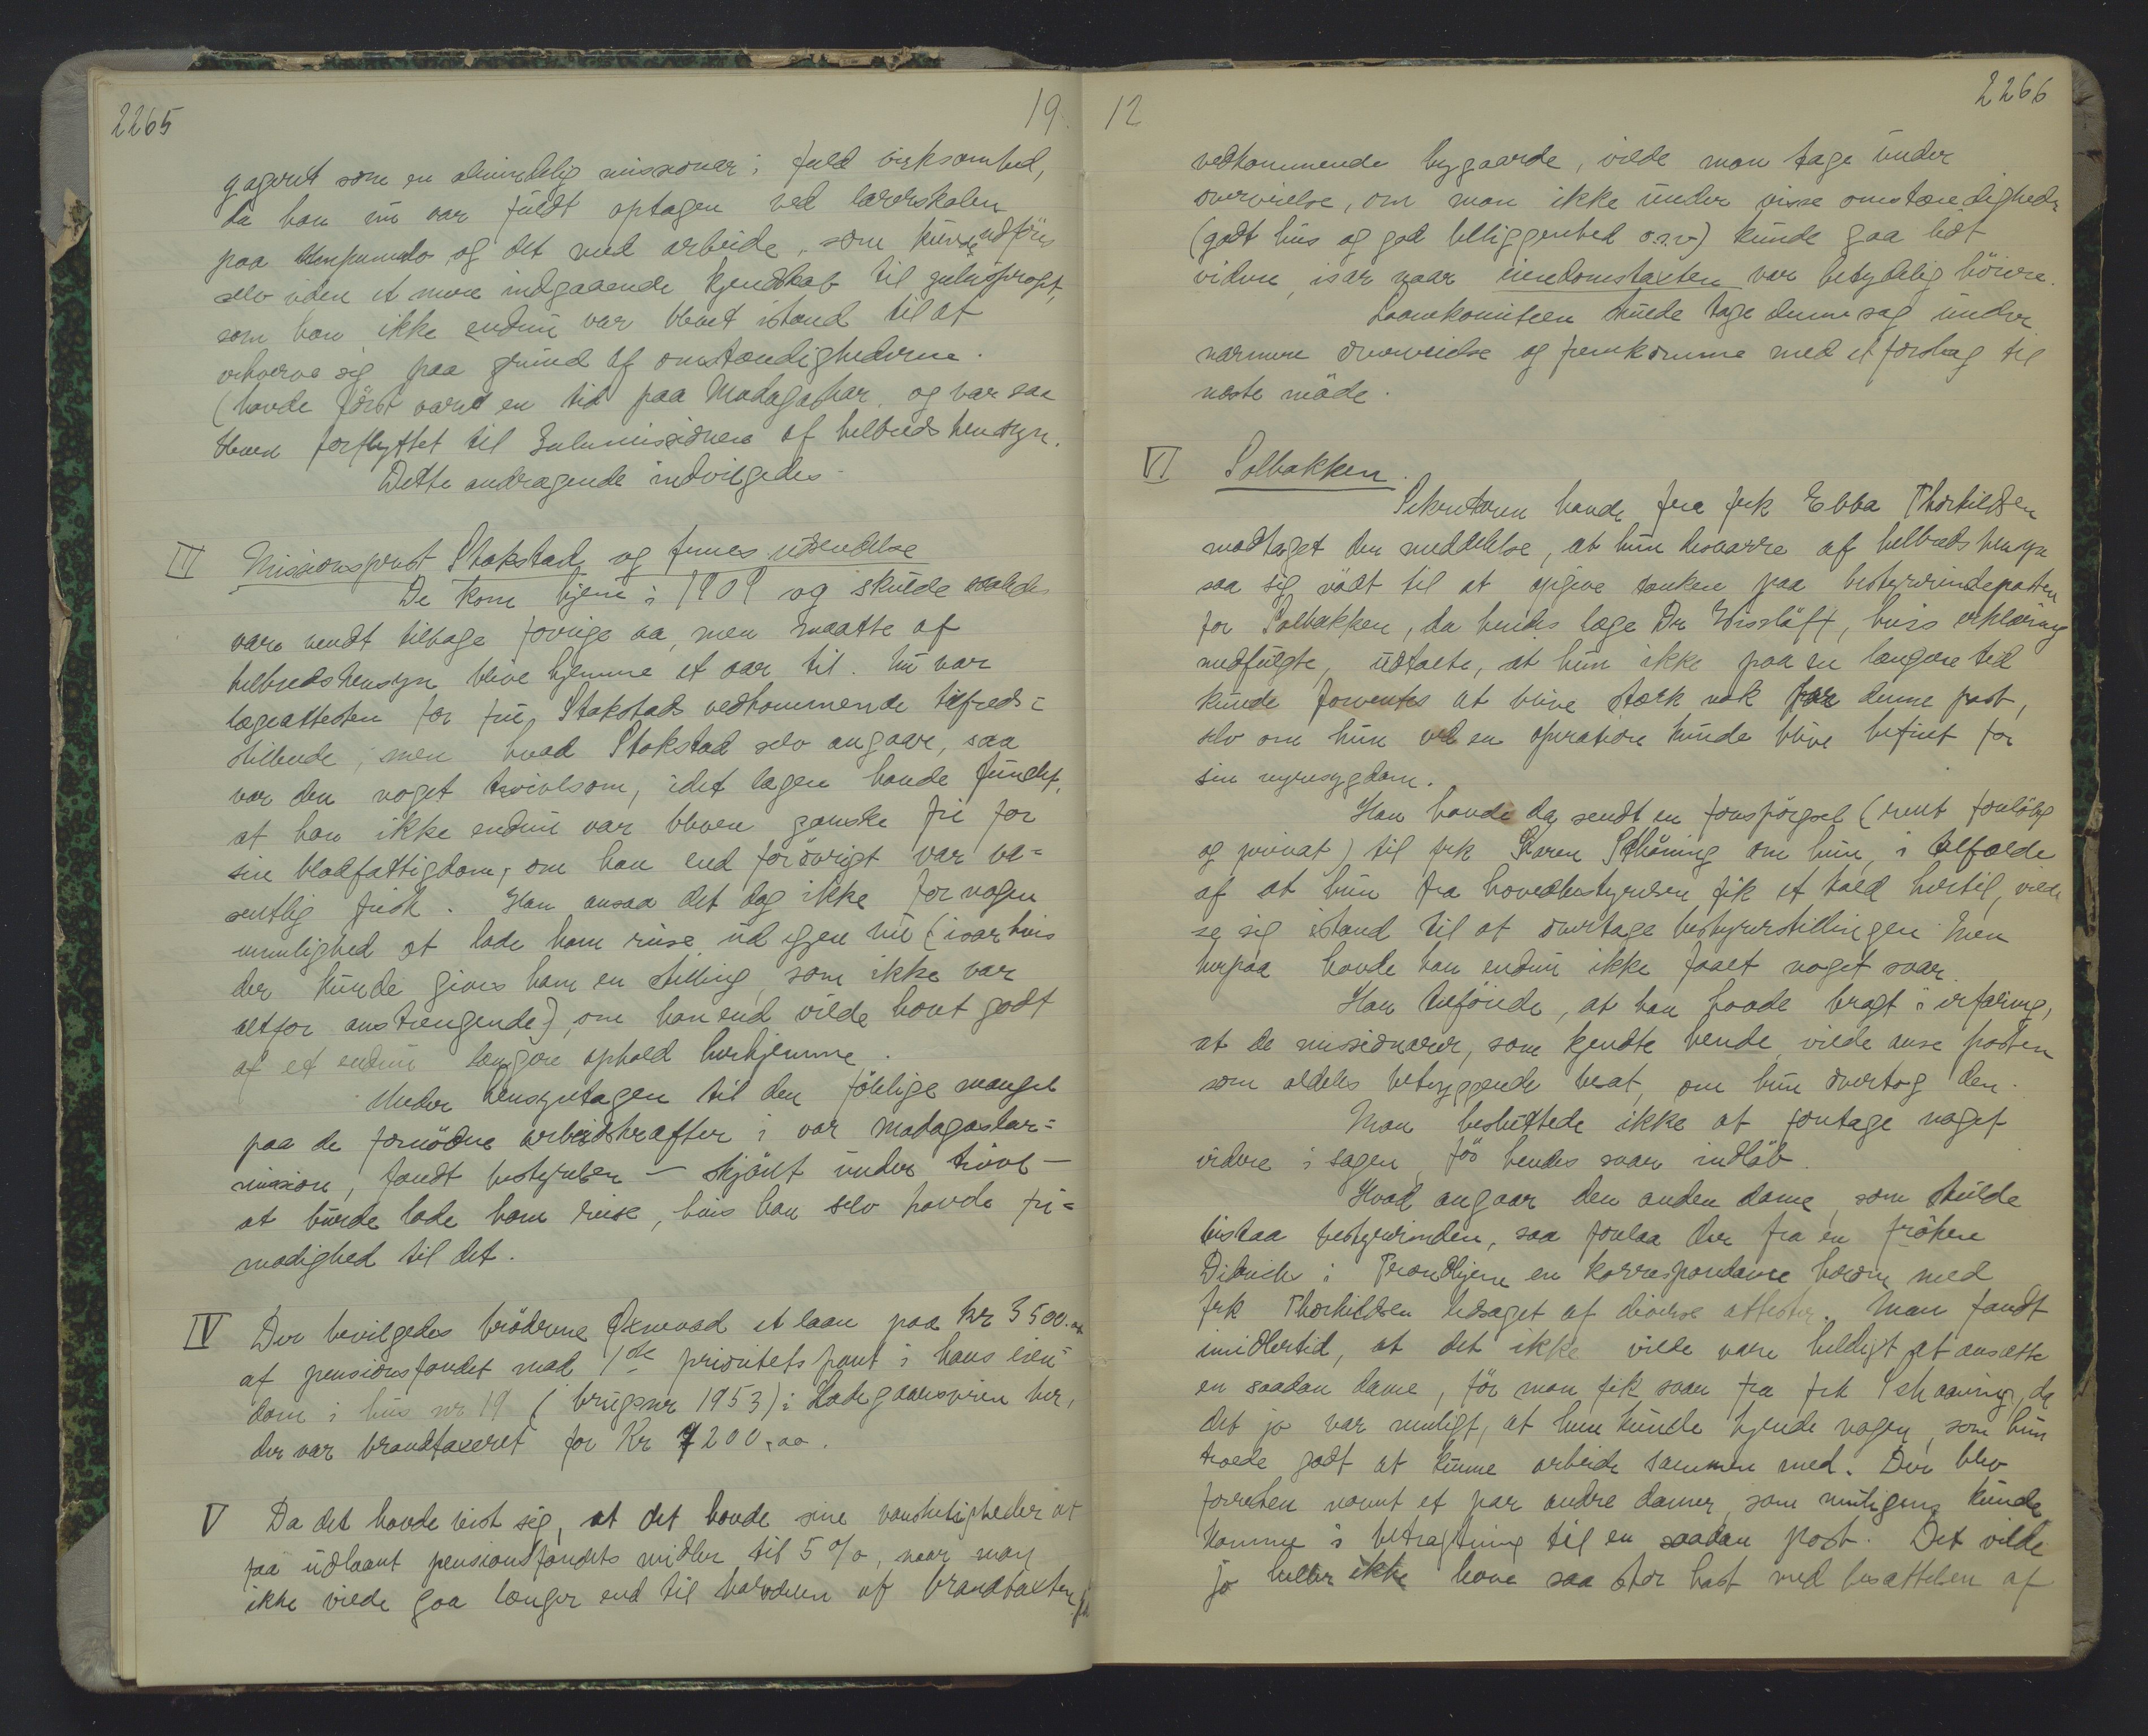 2265
19
gageret som en almindelig missionær i fuld virksomhed,
da han nu var fuldt optagen ved lærerskolen
paa Umpumulo og det med arbeide, som kunde udföres
selv uden et mere indgaaende kjendskab til zulusproget,
som han ikke endnu var blevet istand til at
erhverve sig paa grund af omstændighederne.
(havde först været en tid paa Madagaskar og var saa
bleven forflyttet til Zulumissionen af helbredshensyn.
Dette andragende indvilgedes.
III Missionsprest Stokstad og frues udsendelse
De kom hjem i 1909 og skulde
være vendt tilbage forrige aar, men maatte af
helbredshensyn blive hjemme et aar til. Nu var
lægeattesten for fru Stokstads vedkommende tilfreds=
stillende; men hvad Stokstad selv angaar, saa
var den noget tvivlsom, idet lægen havde fundet,
at han ikke endnu var bleven ganske fri for
sin blodfattigdom, om han end forövrigt var væ=
sentlig frisk. Han ansaa det dog ikke for nogen
umulighed at lade ham reise ud igjen nu (især hvis
der kunde gives ham en stilling, som ikke var
altfor anstrengende), om han end vilde havt godt
af et endnu længere ophold herhjemme.
Under hensyntagen til den fölelige mangel
paa de fornödne arbeidskræfter i vor madagaskar=
mission, fandt bestyrelsen – skjönt under tvivl –
at burde lade ham reise, hvis han selv havde fri=
modighed til det.
IV Der bevilgedes bröderne Öxnevad et laan paa kr 3500.00
af pensionsfondet mod 1ste prioritets pant i hans eien=
dom i hus nr 19 (brugsnr 1953) i Ladegaardsveien her,
der var brandtaxeret for Kr 7200,00.
V Da det havde vist sig, at det havde sine vanskeligheder at
faa udlaant pensionsfondets midler til 5 %, naar man
ikke vilde gaa længer end til halvdelen af brandtaxten for
12
2266
vedkommende bygaarde, vilde man tage under
overveielse, om man ikke under visse omstændigheder
(godt hus og god beliggenhed o.s.v.) kunde gaa lidt
videre, især naar eiendomstaxten var betydelig höiere.
Laanekomiteen skulde tage denne sag under
nærmere overveielse og fremkomme med et forslag til
næste möde.
VI Solbakken.
Sekretæren havde fra frk Ebba Thorkildsen
modtaget den meddelelse, at hun desværre af helbreds hensyn
saa sig nödt til at opgive tanken paa bestyrerindeposten
for Solbakken, da hendes læge Dr Wisslöff, hvis erklæring
medfulgte, udtalte, at hun ikke paa en længere tid
kunde forventes at blive stærk nok for denne post,
selv om hun ved en operation kunde blive befriet for
sin nyresygdom.
Han havde da sendt en forespörgsel (rent forelöbig
og privat) til frk Karen Schöning om hun, i tilfælde
af at hun fra hovedbestyrelsen fik et kald hertil, vilde
se sig istand til at overtage bestyrerstillingen. Men
herpaa havde han endnu ikke faaet noget svar.
Han tilföiede, at han havde bragt i erfaring,
at de missionærer, som kjendte hende, vilde anse posten
som aldeles betryggende besat, om hun overtog den.
Man besluttede ikke at foretage noget
videre i sagen, för hendes svar indlöb.
Hvad angaar den anden dame, som skulde
bistaa bestyrerinden, saa forelaa der fra en fröken
Didrichs i Trondhjem en korrespondance herom med
frk Thorkildsen ledsaget af diverse attester. Man fandt
imidlertid, at det ikke vilde være heldigt at ansætte
en saadan dame, för man fik svar fra frk Schöning, da
det jo var muligt, at hun kunde kjende nogen, som hun
troede godt at kunne arbeide sammen med. Der blev
forresten nævnt et par andre damer, som muligens kunde
komme i betragtning til en saadan post. Det vilde
jo heller ikke have saa stor hast med besættelsen af